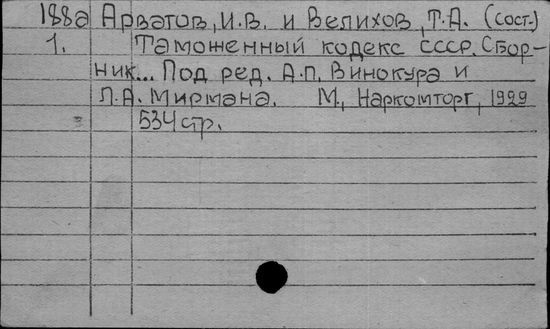 188а Арватов, И.В. и Велихов, Т.А. (сост.)
1. Таможенный кодекс СССР. Сбор-
ник... Под ред. А.П. Винокура и
Л.А. Мирмана. М, Наркомторг, 1929
534 стр.